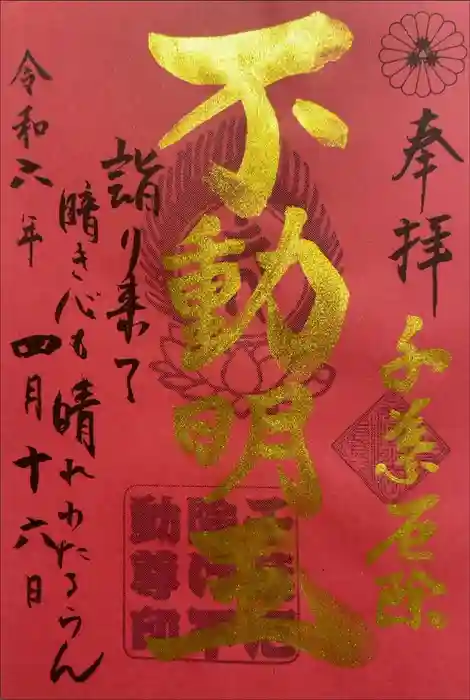 奉拝
千葉厄除
不動明王
詣り来て
暗き心も晴れわたるらん
令和六年四月十六日